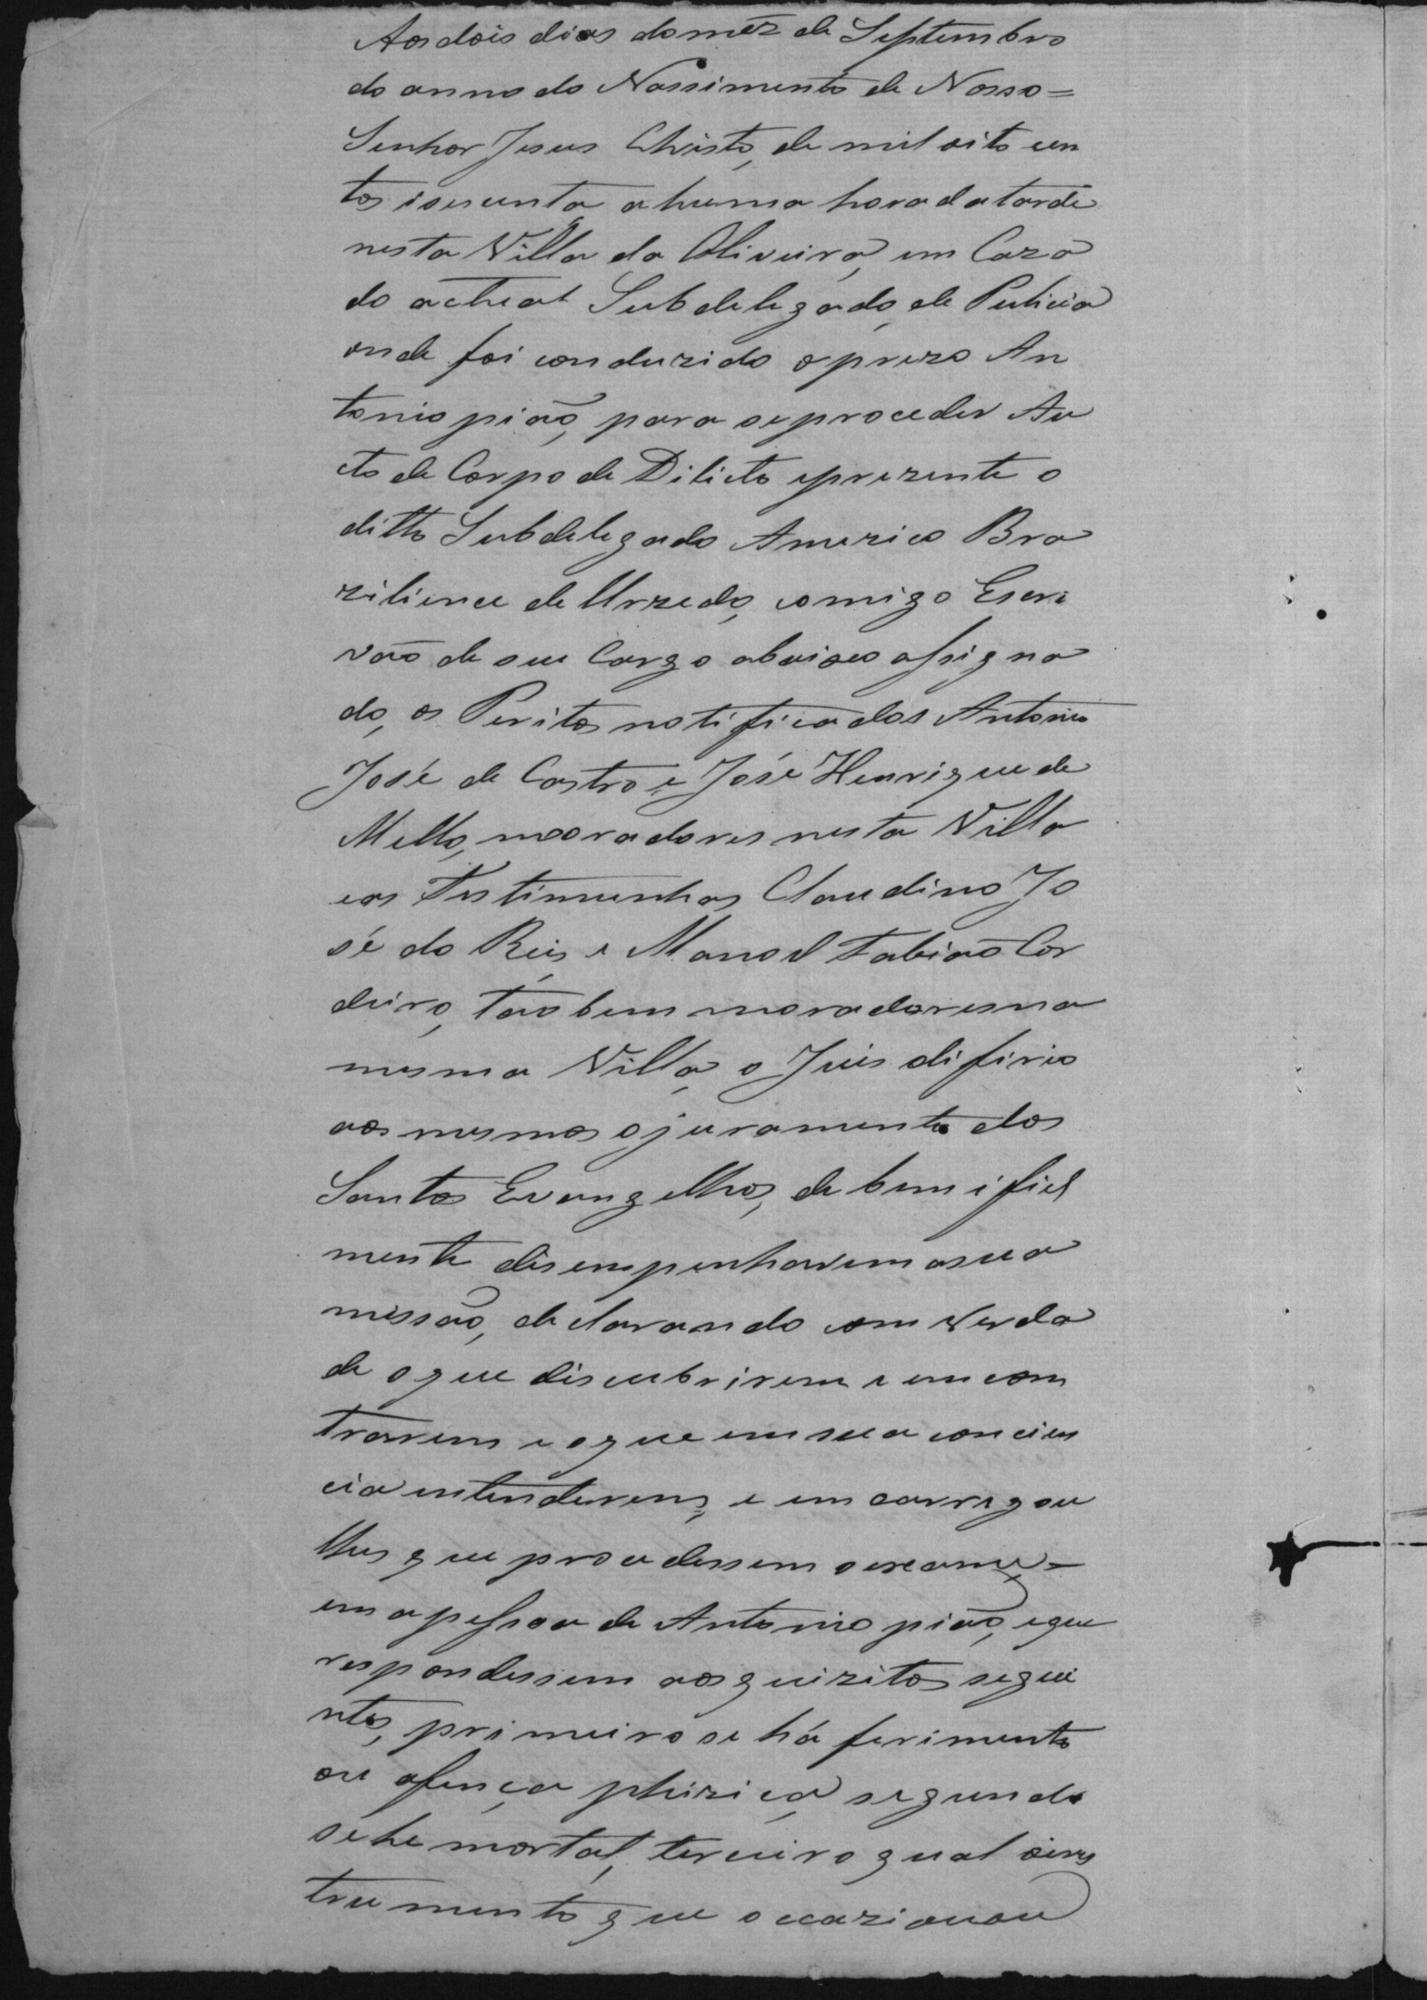 Aos dois dias do mez de Septembro
do anno do Nassimento de Nosso=
Senhor Jesus Christo, de mil oito cen
tos isecenta a huma hora da tarde
nesta Villa da Oliveira, em Caza
do actual Subdelegado, de Pulicia
onde foi conduzido o prezo An
tonio pião, para se proceder Au
cto de Corpo de Dilicto eprezente o
ditto Subdelegado Americo Bra
zilience de Urzedo, comigo Escri
vão de seu Cargo abaixo assigna
do, os Peritos notificados Antonio
José de Castro e José Henrique de
Mello, moradores nesta Villa
eas Testimunhas Claudino Jo
sé do Reis e Manoel Fabiaõ Cor
deiro, taõbem moradores na
mesma Villa, o Juis difirio
aos mesmos o juramento dos
Santos Evangelhos, de bem i fiel
mente disempenharem asua
missaõ, declarando com verda
de o que discubrirem e emcom
trarem e oque em sua concien
cia entenderem, e emcarregou
lhes que procedessem o exame=
em apessoa de Antonio piaõ, eque
respondessem aos quizitos segui
ntes, primeiro se há ferimento
ou ofença phizica, segundo
se he mortal, terceiro qual oins
trumento que occazionou